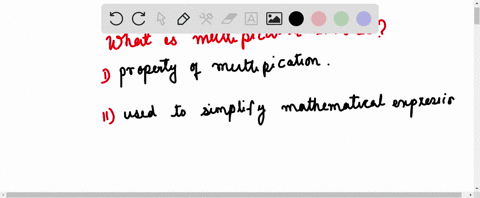 What is multiplication ?
I) property of multipication .
II) used to simplify mathematical expressio